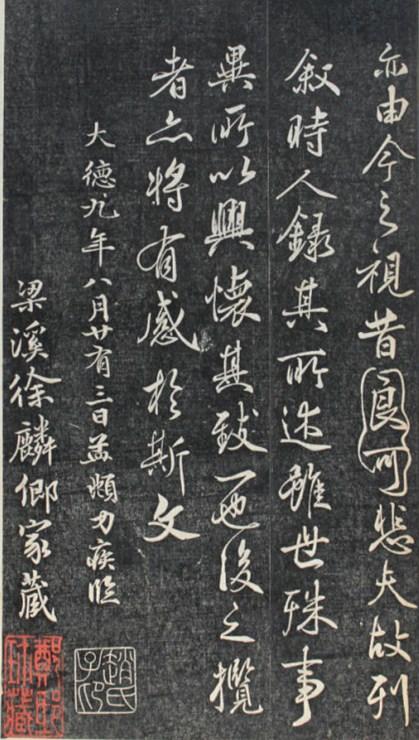 亦由今之視昔良可悲夫故列
叙時人錄其所述雖世殊事
異所以興懷其致一也後之攬
者亦將有感於斯文
大德九年八月廿有三日孟頫力疾臨
趙氏子昂
梁溪徐麟卿家藏